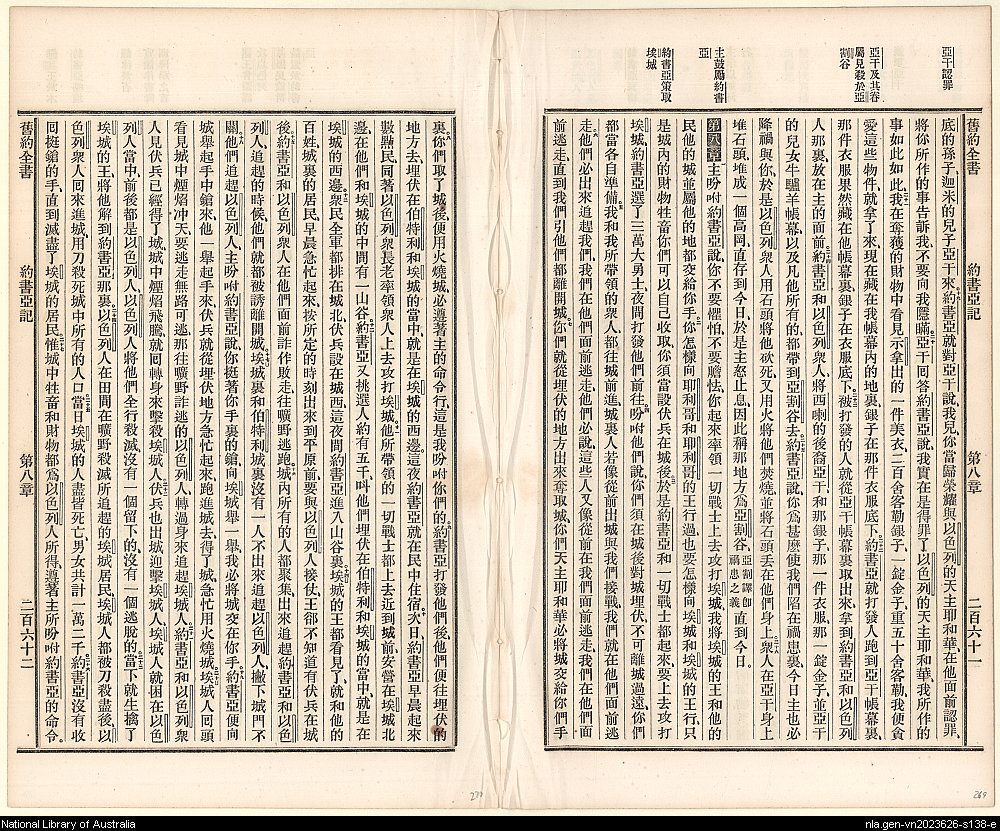 亞干認罪
亞干及其眷
屬見殺於亞
割谷
主鼓勵約書
亞
約書亞策取
埃城
舊約全書 約書亞記 第八章 二百六十一
底的孫子、迦米的兒子亞干來、約書亞就對亞干說、我兒、你當歸榮耀與以色列的天主耶和華、在他面前認罪、
將你所作的事告訴我、不要向我隱瞞、亞干回答約書亞說、我實在是得罪了以色列的天主耶和華、我所作的
事如此如此、我在奪獲的財物中看見示拿出的一件美衣、二百舍客勒銀子、一錠金子、重五十舍客勒、我便貪
愛這些物件、就拿了來、現在藏在我帳幕內的地裏、銀子在那件衣服底下、約書亞就打發人跑到亞干帳幕裏、
那件衣服果然藏在他帳幕裏、銀子在衣服底下、被打發的人就從亞干帳幕裏取出來、拿到約書亞和以色列
人那裏、放在主的面前、約書亞和以色列眾人、將西喇的後裔亞干和那銀子、那一件衣服、那一錠金子、並亞干
的兒女牛驢羊帳幕、以及凡他所有的、都帶到亞割谷去、約書亞說、你爲甚麼使我們陷在禍患裏、今日主也必
降禍與你、於是以色列眾人用石頭將他砍死、又用火將他們焚燒、並將石頭丟在他們身上、眾人在亞干身上
堆石頭、堆成一個高岡、直存到今日、於是主怒止息、因此稱那地方爲亞割谷、亞割譯卽禍患之義直到今日、
第八章 主吩咐約書亞說、你不要懼怕、不要膽怯、你起來率領一切戰士上去攻打埃城、我將埃城的王和他的
民、他的城、並屬他的地、都交給你手、你怎樣向耶利哥和耶利哥的王行過、也要怎樣向埃城和埃城的王行、只
是城內的財物牲畜、你們可以自己收取、你須當設伏兵在城後、於是約書亞和一切戰士都起來、要上去攻打
埃城、約書亞選了三萬大勇士、夜間打發他們前往、吩咐他們說、你們須在城後對城埋伏、不可離城過遠、你們
都當各自準備、我和我所帶領的眾人都往城前進、城裏人若像從前出城與我們接戰、我們就在他們面前逃
走、他們必出來追趕我們、我們在他們面前逃走、他們必說、這些人又像從前在我們面前逃走、我們在他們面
前逃走、直到我們引他們都離開城、你們就從埋伏的地方出來奪取城、你們天主耶和華必將城交給你們手
裏、你們取了城後、便用火燒城、必遵著主的命令行、這是我吩咐你們的、約書亞打發他們後、他們便往埋伏的
地方去、埋伏在伯特利和埃城的當中、就是在埃城的西邊、這夜約書亞就在民中住宿、次日約書亞早晨起來
數點民、同著以色列眾長老率領眾人上去攻打埃城、他所帶領的一切戰士都上去、近到城前、安營在埃城北
邊、在他們和埃城的中間有一山谷、約書亞又挑選人約有五千、叫他們埋伏在伯特利和埃城的當中、就是在
埃城的西邊、眾民全軍都排在城北、伏兵設在城西、這夜間約書亞進入山谷裏、埃城的王都看見了、就和他的
百姓、城裏的居民、早晨急忙起來、按所定的時刻出來到平原前、要與以色列人接仗、王卻不知道有伏兵在城
後、約書亞和以色列眾人在他們面前詐作敗走、往曠野逃跑、城內所有的人都聚集出來追趕、約書亞和以色
列人、追趕的時候、他們就都被誘離開城、埃城裏和伯特利城裏沒有一人不出來追趕以色列人、撇下城門不
關、他們追趕以色列人、主吩咐約書亞說、你挺著你手裏的鎗向埃城舉一舉、我必將城交在你手、約書亞便向
城舉起手中鎗來、他一舉起手來、伏兵就從埋伏地方急忙起來、跑進城去、得了城、急忙用火燒城、埃城人回頭
看見城中煙焰冲天、要逃走無路可逃、那往曠野詐逃的以色列人轉過身來追趕埃城人、約書亞和以色列眾
人見伏兵已經得了城、城中煙焰飛騰、就囘轉身來擊殺埃城人、伏兵也出城迎擊埃城人、埃城人就困在以色
列人當中、前後都是以色列人、以色列人將他們全行殺滅、沒有一個留下的、沒有一個逃脫的、當下就生擒了
埃城的王、將他解到約書亞那裏、以色列人在田間、在曠野殺滅所追趕的埃城居民、埃城人都被刀殺盡後、以
色列眾人囘來進城、用刀殺死城中所有的人口、當日埃城的人盡皆死亡、男女共計一萬二千、約書亞沒有收
囘挺鎗的手、直到滅盡了埃城的居民、惟城中牲畜和財物都爲以色列人所得、遵著主所吩咐約書亞的命令、
舊約全書 約書亞記 第八章 二百六十二
270
269
National Library of Australia
nla.gen-vn2023626-s138-e